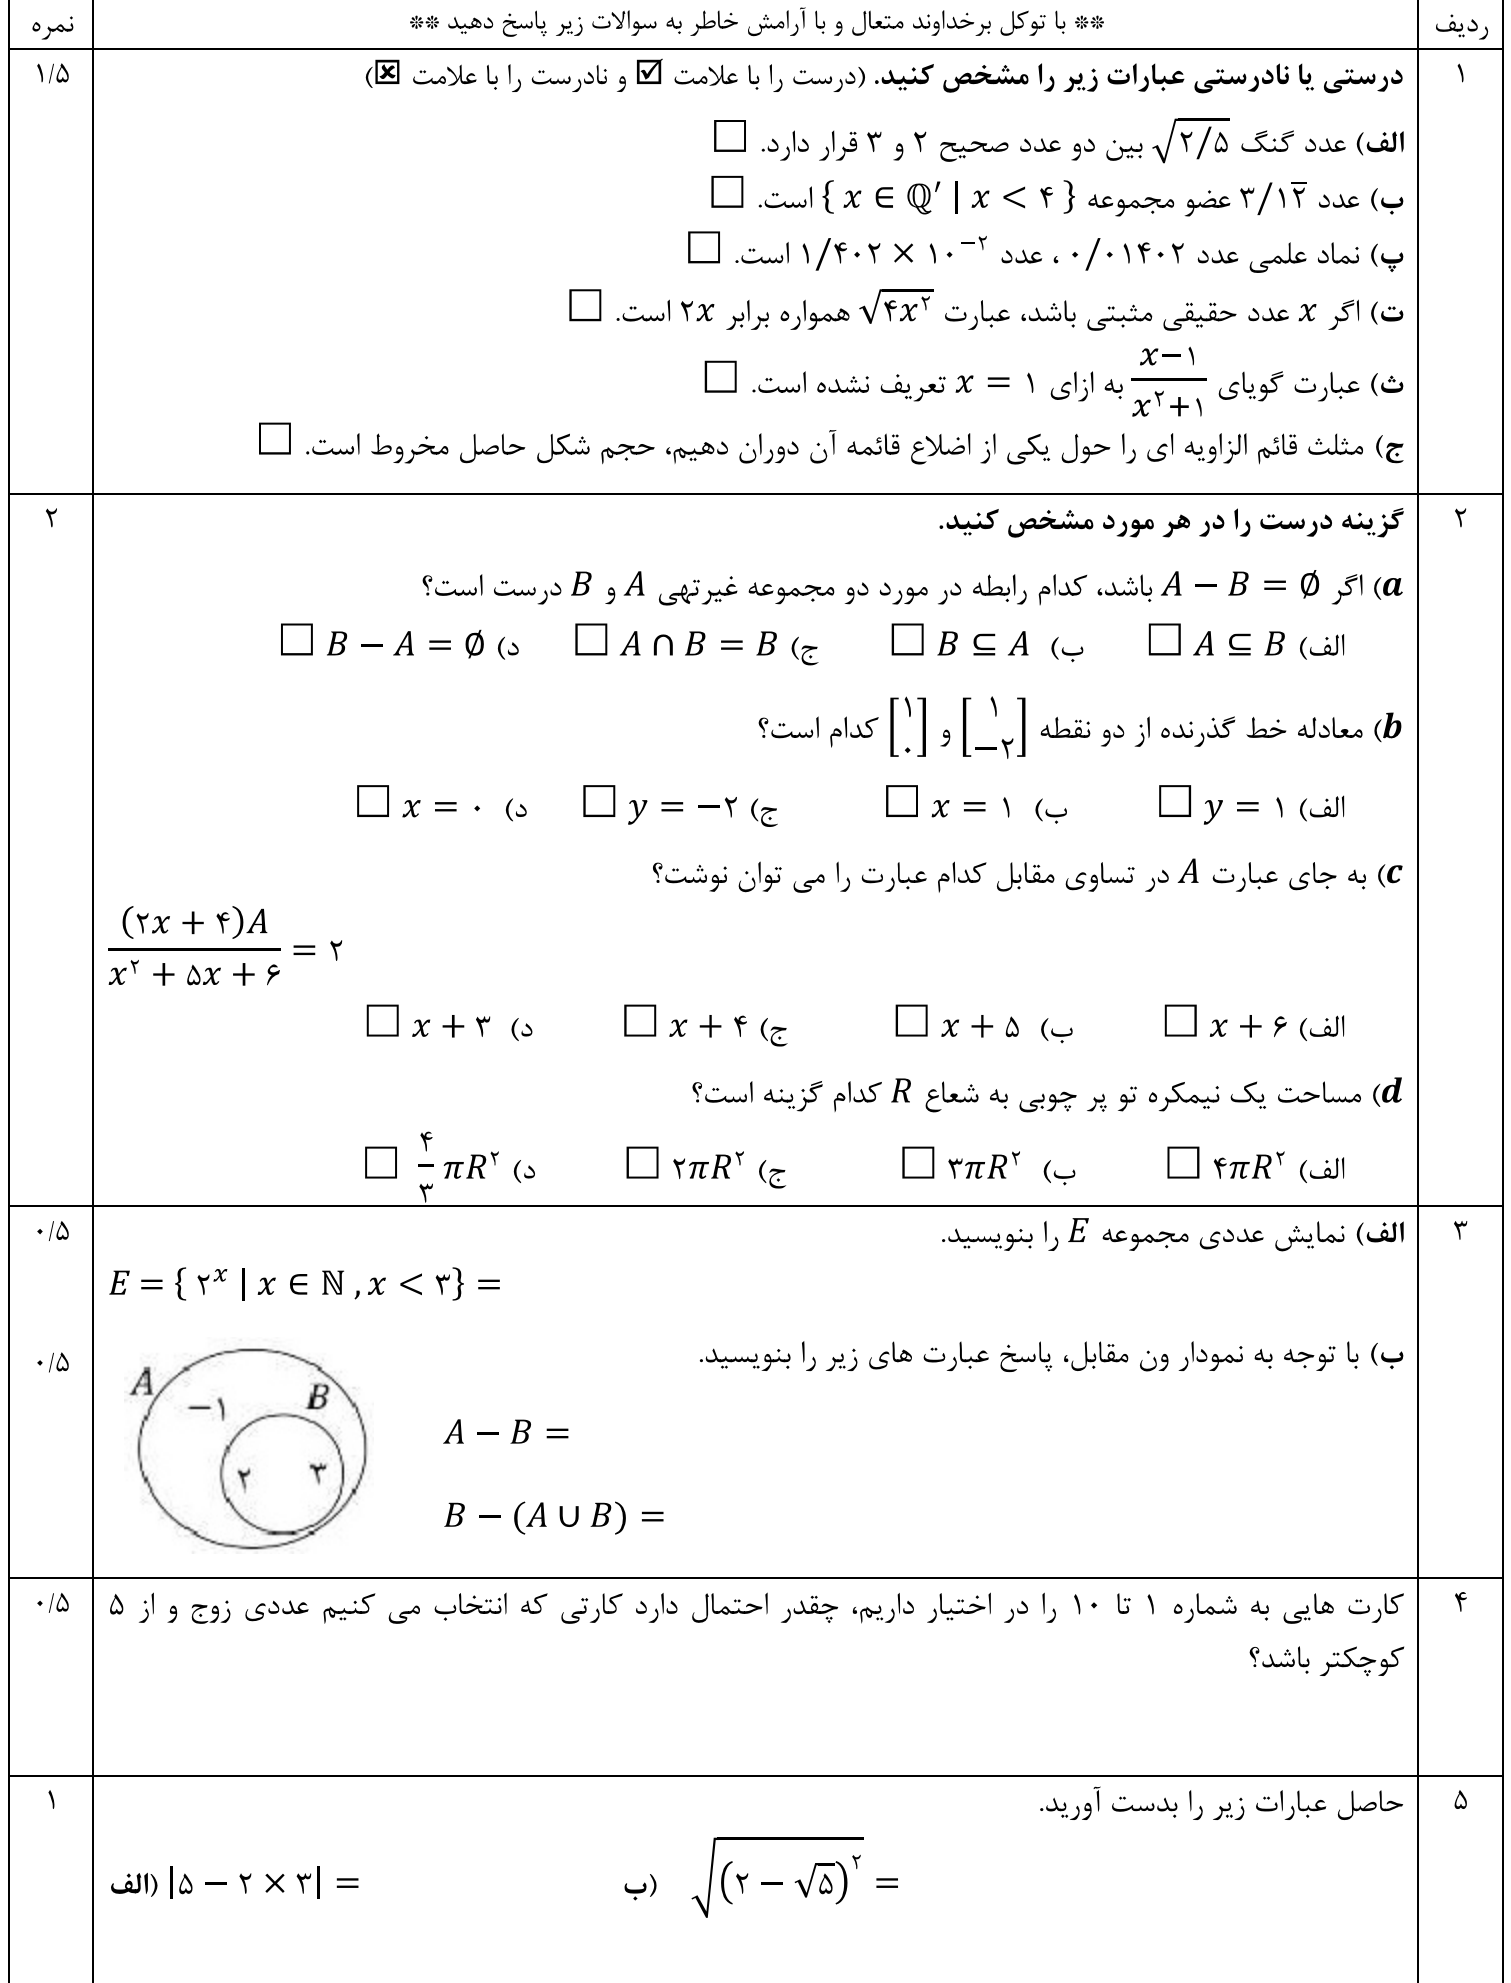 ردیف ** با توکل برخداوند متعال و با آرامش خاطر به سوالات زیر پاسخ دهید ** نمره
۱ درستی یا نادرستی عبارات زیر را مشخص کنید. (درست را با علامت ☑ و نادرست را با علامت ☒) ۱/۵
الف) عدد گنگ √۲/۵ بین دو عدد صحیح ۲ و ۳ قرار دارد. □
ب) عدد ۳/۱۲̅ عضو مجموعه { x ∈ ℚ′ | x < ۴ } است. □
پ) نماد علمی عدد ۰/۰۱۴۰۲ ، عدد ۱/۴۰۲ × ۱۰⁻² است. □
ت) اگر x عدد حقیقی مثبتی باشد، عبارت √۴x² همواره برابر ۲x است. □
ث) عبارت گویای (x−۱)/(x²+۱) به ازای x = ۱ تعریف نشده است. □
ج) مثلث قائم الزاویه ای را حول یکی از اضلاع قائمه آن دوران دهیم، حجم شکل حاصل مخروط است. □
۲ گزینه درست را در هر مورد مشخص کنید. ۲
a) اگر A − B = ∅ باشد، کدام رابطه در مورد دو مجموعه غیرتهی A و B درست است؟
الف) A ⊆ B □ ب) B ⊆ A □ ج) A ∩ B = B □ د) B − A = ∅ □
b) معادله خط گذرنده از دو نقطه [۱ −۲] و [۱ ۰] کدام است؟
الف) y = ۱ □ ب) x = ۱ □ ج) y = −۲ □ د) x = ۰ □
c) به جای عبارت A در تساوی مقابل کدام عبارت را می توان نوشت؟
(۲x + ۴)A / (x² + ۵x + ۶) = ۲
الف) x + ۶ □ ب) x + ۵ □ ج) x + ۴ □ د) x + ۳ □
d) مساحت یک نیمکره تو پر چوبی به شعاع R کدام گزینه است؟
الف) ۴πR² □ ب) ۳πR² □ ج) ۲πR² □ د) ۴/۳ πR² □
۳ الف) نمایش عددی مجموعه E را بنویسید. ۰/۵
E = { ۲ˣ | x ∈ ℕ , x < ۳} =
ب) با توجه به نمودار ون مقابل، پاسخ عبارت های زیر را بنویسید. ۰/۵
A B
−۱
۲ ۳
A − B =
B − (A ∪ B) =
۴ کارت هایی به شماره ۱ تا ۱۰ را در اختیار داریم، چقدر احتمال دارد کارتی که انتخاب می کنیم عددی زوج و از ۵ ۰/۵
کوچکتر باشد؟
۵ حاصل عبارات زیر را بدست آورید. ۱
الف) |۵ − ۲ × ۳| = ب) √(۲ − √۵)² =